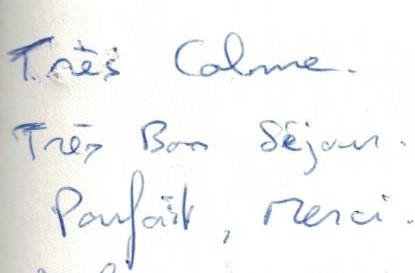 Très Calme.
Très Bon Séjour.
Parfait, Merci.